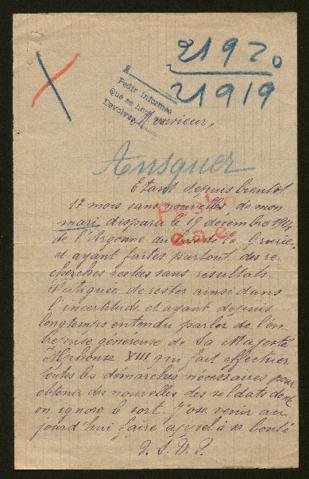 21920
21919
Pedir informes
Que se
Devolver
Monsieur,
Ausquer
Etant depuis bientot
12 mois sans nouvelles de mon
mari disparu le 17 décembre 1914
de l'Argonne au bois de la Grurie
et ayant faites partout des re-
cherches restées sans resultats.
Fatiguée de rester ainsi dans
l'incertitude et ayant depuis
longtemps entendu parler de l'en-
treprise généreuse de Sa Majesté
Alphonse XIII qui fait effectuer
toutes les démarches nécessaires pour
obtenir des nouvelles des soldats dont
on ignore le sort. J'ose venir au-
jourd'hui faire appel à sa bonté
T. S. V. P.